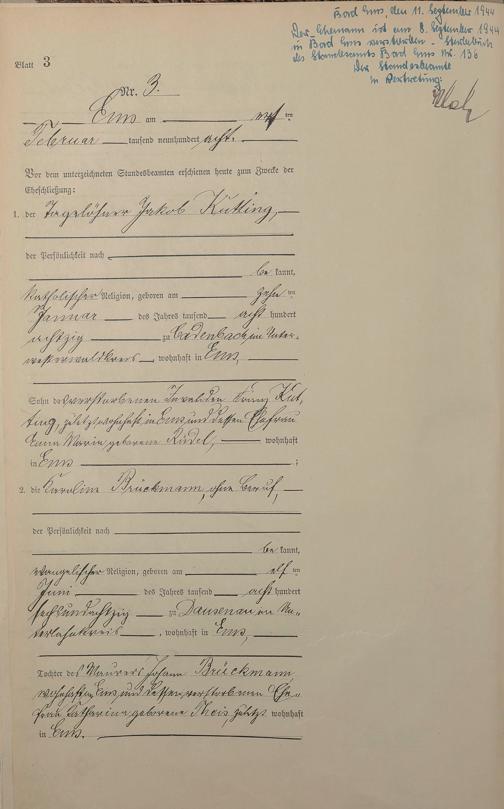 Bad Ems, den 11. September 1944
Der Ehemann ist am 8. September 1944
in Bad Ems verstorben - Sterbebuch
des Standesamts Bad Ems Nr. 136
Der Standesbeamte
in Vertretung:
Blatt 3
Nr. 3.
Ems am ten
Februar tausend neunhundert acht.
Vor dem unterzeichneten Standesbeamten erschienen heute zum Zwecke der
Eheschließung:
1. der Tagelöhner Jakob Kutting,
der Persönlichkeit nach
be kannt,
katholischer Religion, geboren am zehn ten
Januar des Jahres tausend acht hundert
achtzig zu Cadenbach im Unter-
westerwaldkreis, wohnhaft in Ems,
Sohn des verstorbenen Invaliden Franz Kut-
ting, zuletzt wohnhaft in Ems und dessen Ehefrau
Anna Maria geborene wohnhaft
in Ems ;
2. die Karoline Brückmann, ohne Beruf,
der Persönlichkeit nach
be kannt,
evangelischer Religion, geboren am elf ten
Juni des Jahres tausend acht hundert
sechsundachtzig zu Dausenau im Un-
terlahnkreis, wohnhaft in Ems,
Tochter des Maurers Johann Brückmann,
wohnhaft in Ems, und dessen verstorbenen Ehe-
frau Katharina geborene Theis, zuletzt wohnhaft
in Ems.